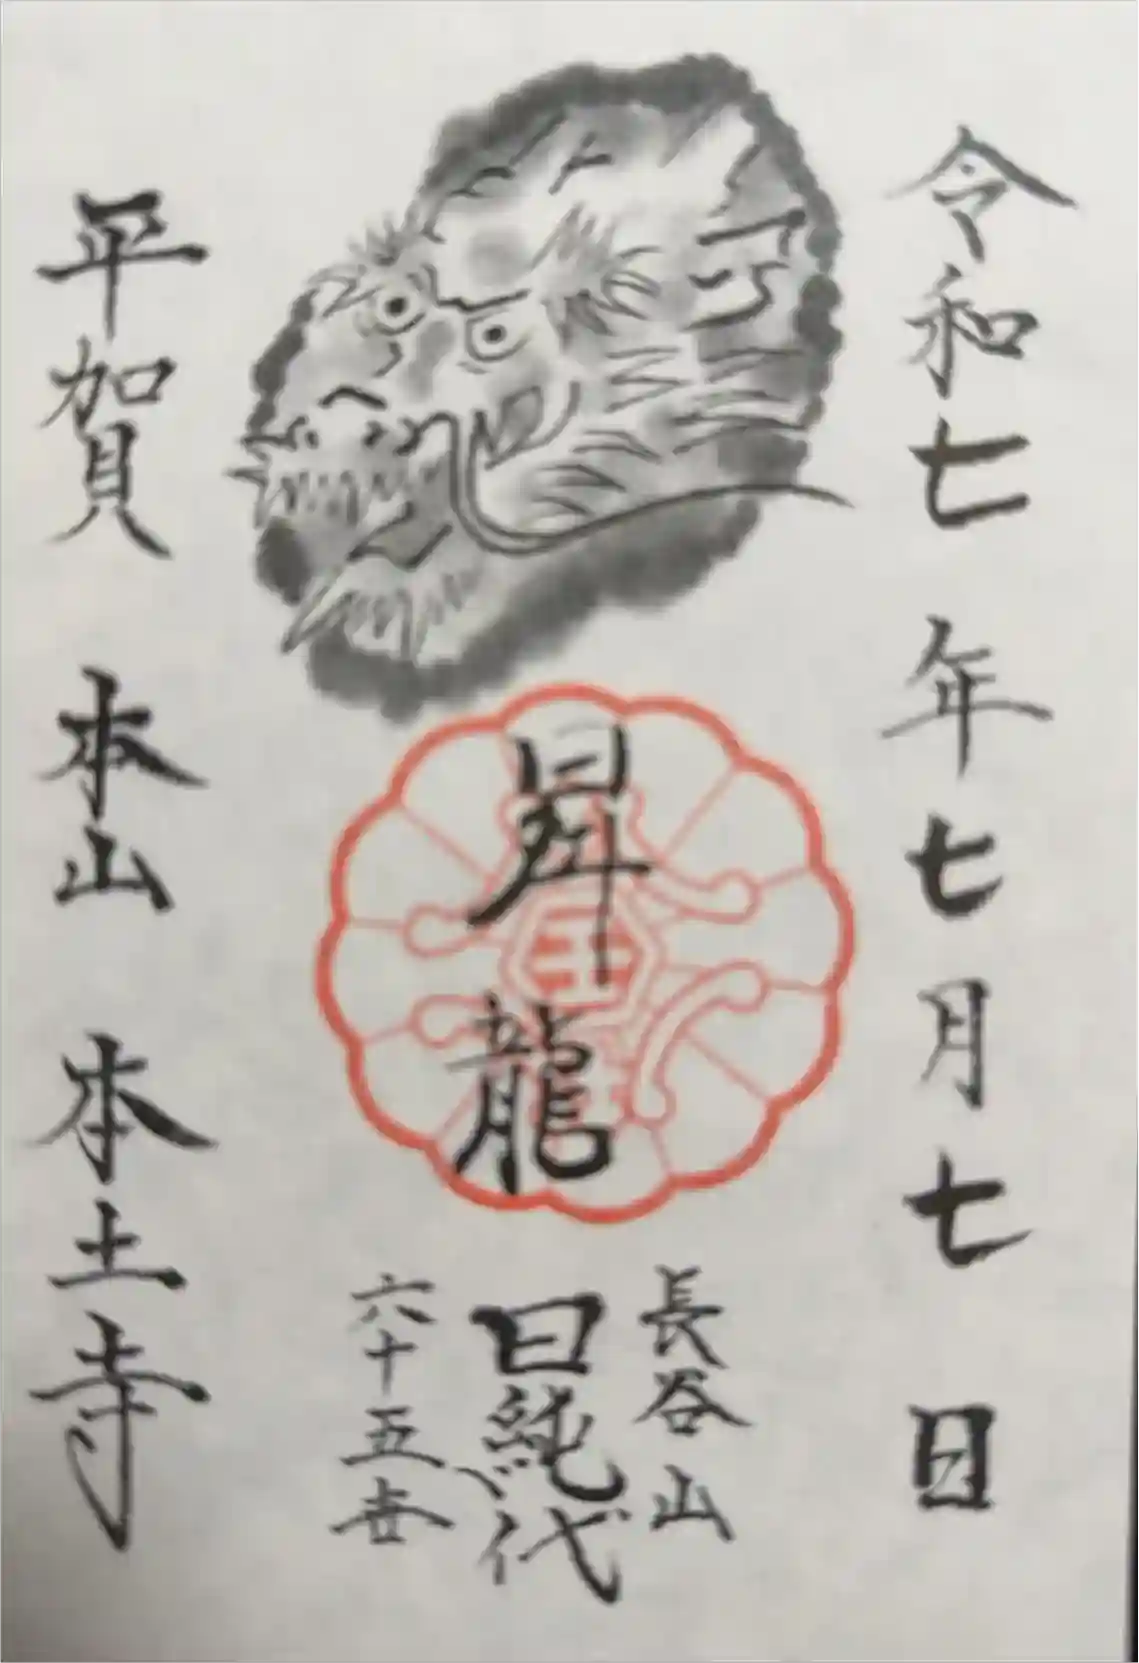 令和七年七月七日
昇龍
長谷山
日純代
六十五世
平賀 本山 本土寺